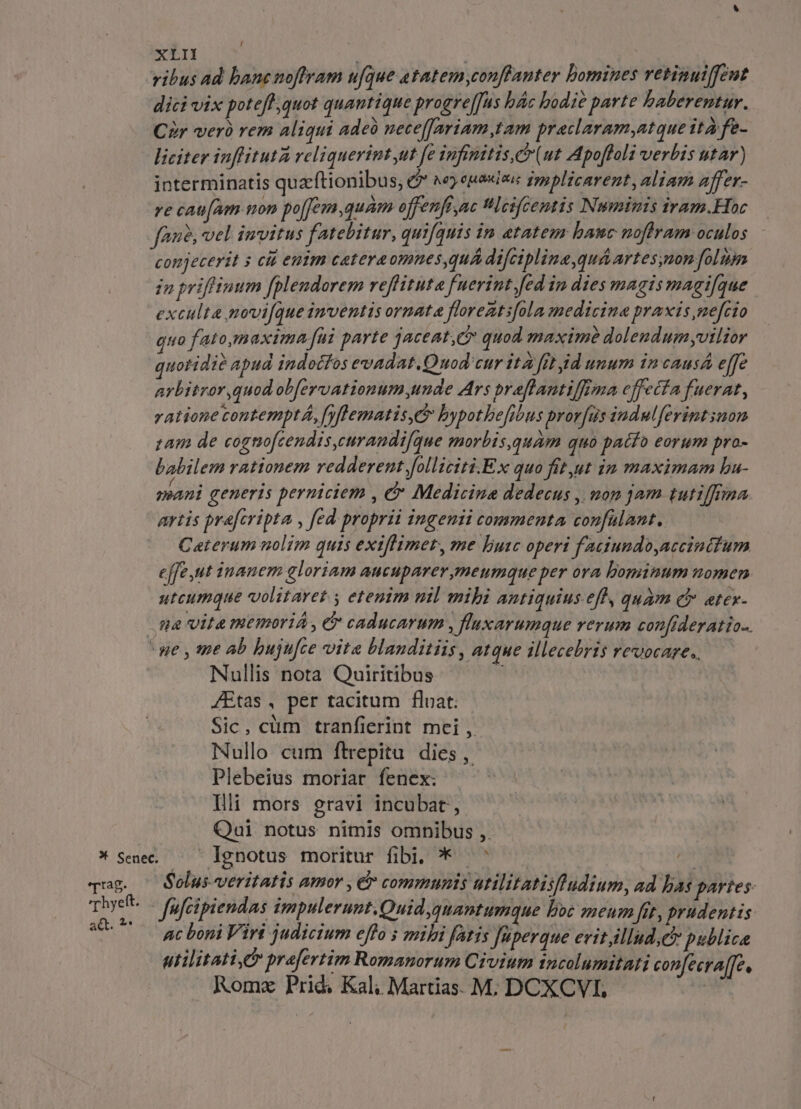 XLII
ribus ad hanc nostram usque ætatem, constanter homines retinuissent
dici vix potest, quot quantique progressus hâc hodiè parte haberentur.
Cùr verò rem aliqui adeò necessariam, tam præclaram, atque ità fe-
liciter institutã reliquerint, ut se infinitis, & (ut Apostoli verbis utar)
interminatis quæstionibus, & λογομαχίαις implicarent, aliam affer-
re causam non possem, quàm offensi, ac ulciscentis Numinis iram. Hoc
sanè, vel invitus fatebitur, quisquis in ætatem hanc nostram oculos
conjecerit; cũ enim cæteræ omnes, quâ disciplinæ, quâ artes, non solùm
in pristinum splendorem restitutæ fuerint, sed in dies magis magisque
excultæ, novisque inventis ornatæ floreãt; sola medicinæ praxis, nescio
quo fato, maxima sui parte jaceat, & quod maximè dolendum, vilior
quotidiè apud indoctos evadat. Quod cur ità fit, id unum in causâ esse
arbitror, quod observationum, unde Ars præstantissima effecta fuerat,
ratione contemptâ, systematis, & hypothesibus prorsùs indulserint; non
tam de cognoscendis, curandisque morbis, quàm quo pacto eorum pro-
babilem rationem redderent, solliciti. Ex quo fit, ut in maximam hu-
mani generis perniciem, & Medicinæ dedecus, non jam tutissima
artis præscripta, sed proprii ingenii commenta consulant.
Cæterum nolim quis existimet, me huic operi faciundo, accinctum
esse, ut inanem gloriam aucuparer, meumque per ora hominum nomen
utcumque volitaret; etenim nil mihi antiquius est, quàm & æter-
næ vitæ memoriâ, & caducarum, fluxarumque rerum consideratio-
ne, me ab hujusce vitæ blanditiis, atque illecebris revocare.
Nullis nota Quiritibus
Ætas, per tacitum fluat:
Sic, cùm transierint mei,
Nullo cum strepitu dies,
Plebeius moriar senex:
Illi mors gravi incubat,
Qui notus nimis omnibus,
* Senec. Ignotus moritur sibi. *
Trag. Solus veritatis amor, & communis utilitatis studium, ad has partes
Thyest. suscipiendas impulerunt. Quid, quantumque hoc meum sit, prudentis
act. 2. ac boni Viri judicium esto; mihi satis superque erit, illud, & publicæ
utilitati, & præsertim Romanorum Civium incolumitati consecrasse.
Romæ Prid. Kal. Martias. M. DCXCVI.